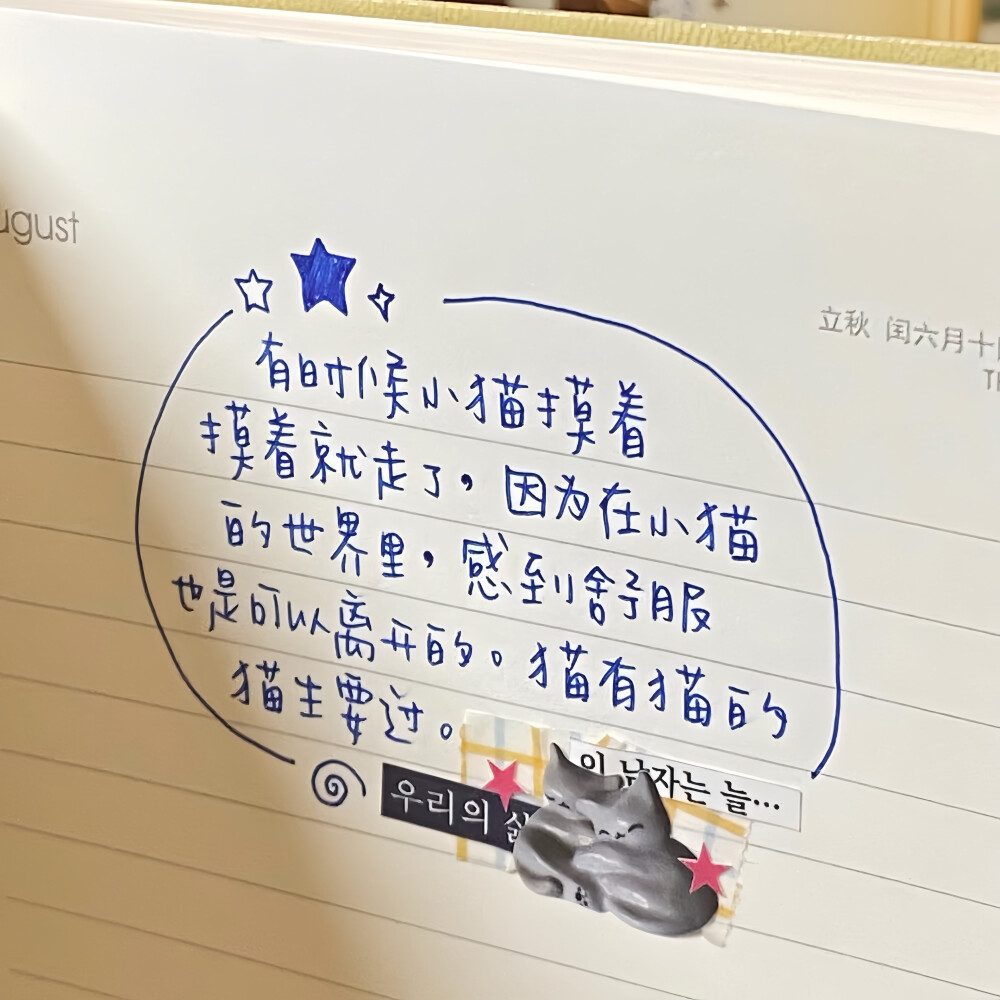 ugust
立秋 闰六月十
有时候小猫摸着
摸着就走了，因为在小猫
的世界里，感到舒服
也是可以离开的。猫有猫的
猫生要过。
우리의
늘…